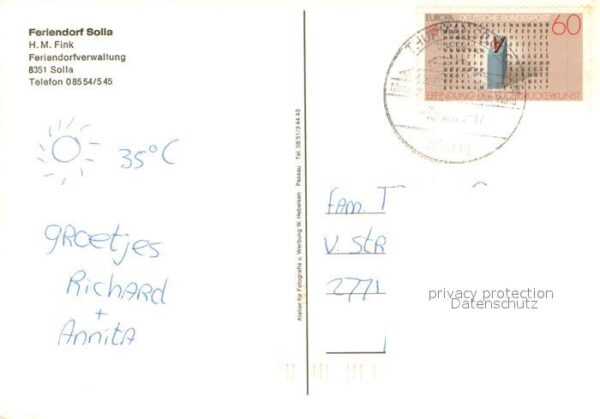 Feriendorf Solla
H. M. Fink
Feriendorfverwaltung
8351 Solla
Telefon 08554/545
EUROPA DEUTSCHE BUNDESPOST 60
ERFINDUNG DER BUCHDRUCKERKUNST
35°C
GROETJES
RICHARD
+
ANNITA
Atelier für Fotografie u. Werbung W. Hebelsen Passau Tel. 08 51/3 44 43
FAM. T
V. STR
2771
privacy protection
Datenschutz